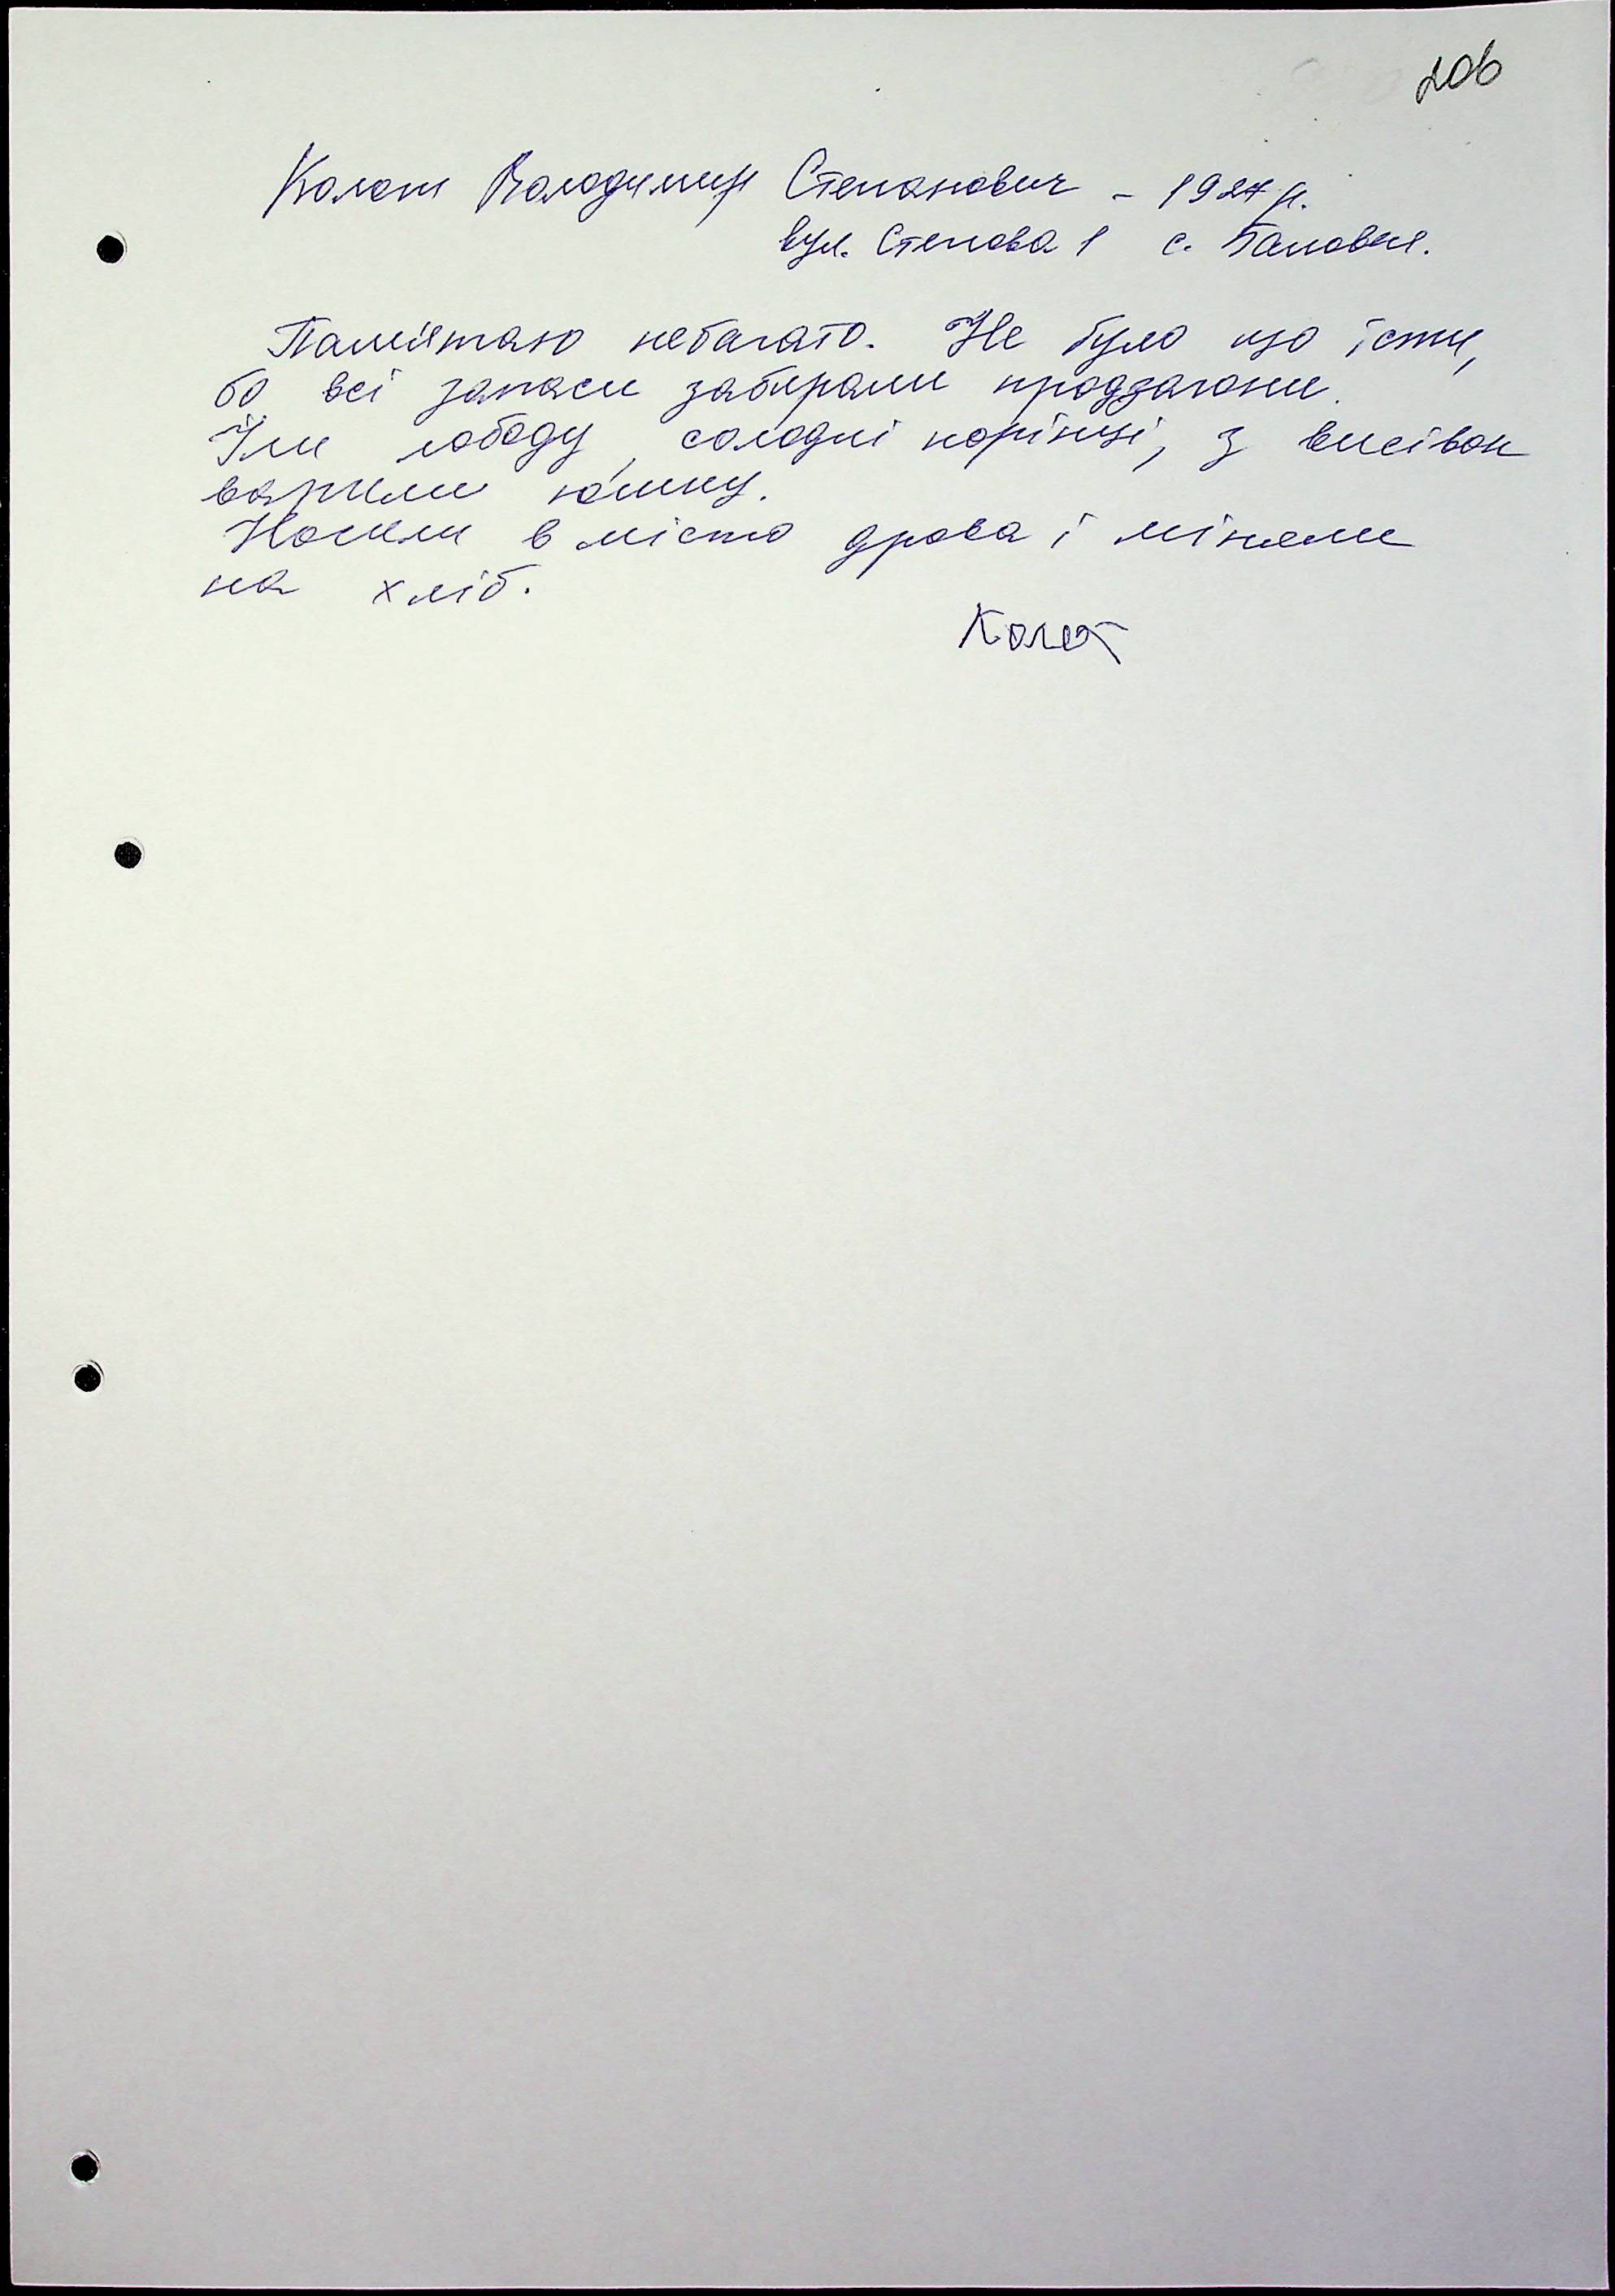 206
Колот Володимир Степанович - 1927 р.
вул. Степова 1 с. Баловне.
Пам'ятаю небагато. Не було що їсти,
бо всі запаси забирали продзагони.
Їли лободу, солодкі корінці, з висівок
варили юшку.
Носили в місто дрова і міняли
на хліб.
Колот